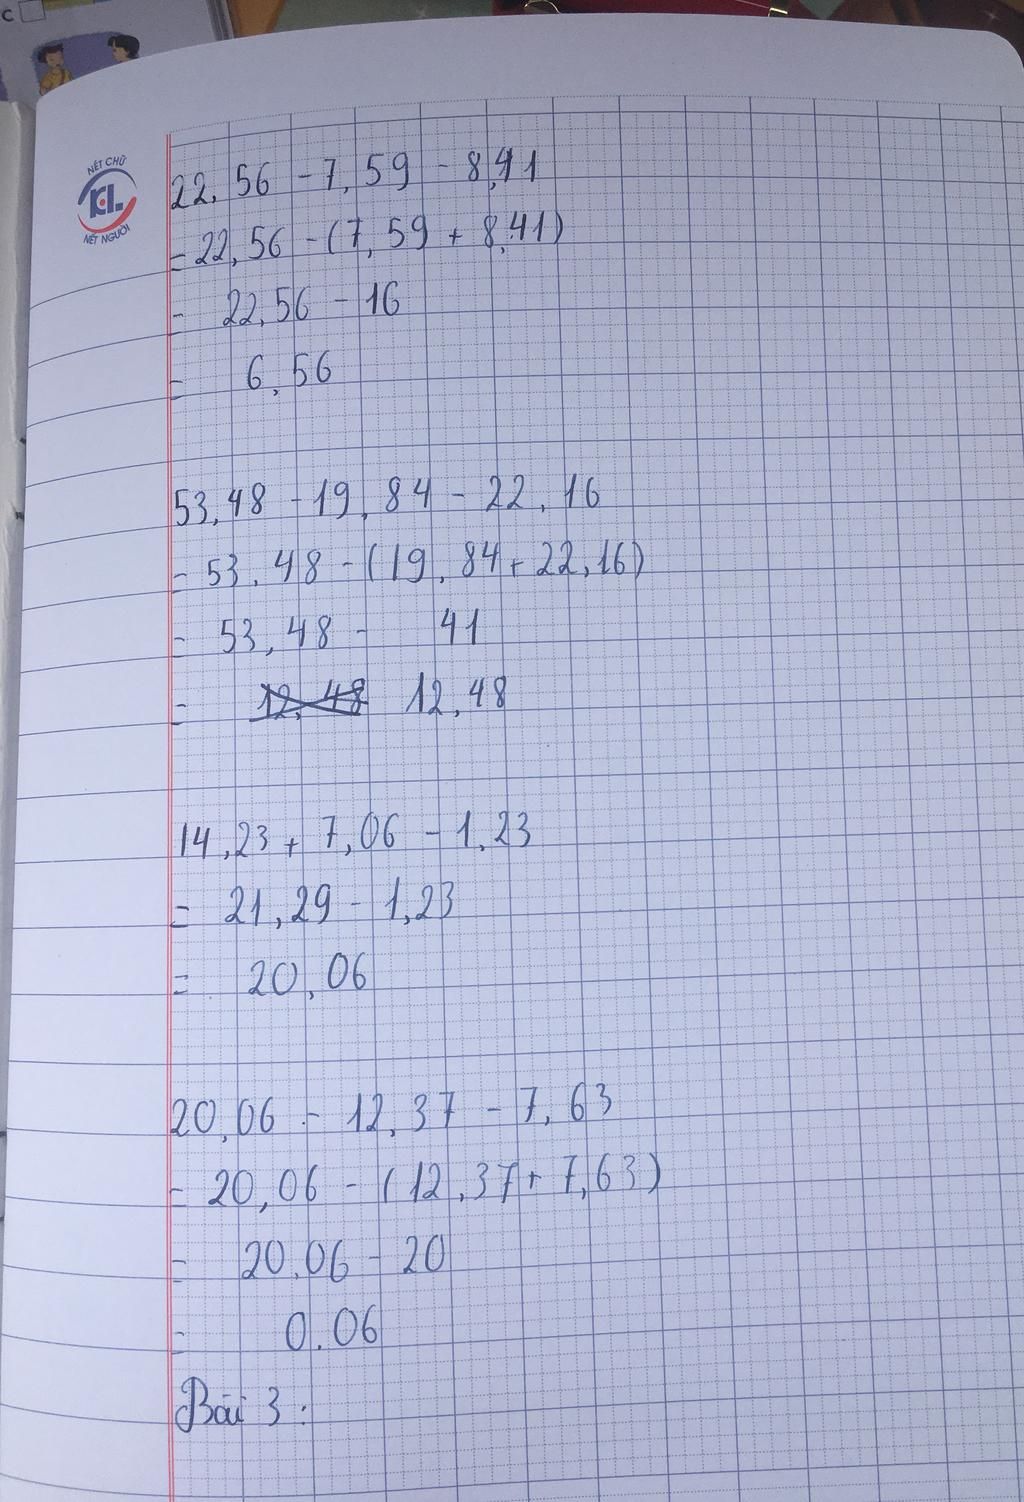 C
NÉT CHỮ
KL
NẾT NGƯỜI
22,56 - 7,59 - 8,41
= 22,56 - (7,59 + 8,41)
= 22,56 - 16
= 6,56
53,48 - 19,84 - 22,16
= 53,48 - (19,84 + 22,16)
= 53,48 - 41
= 12,48 12,48
14,23 + 7,06 - 1,23
= 21,29 - 1,23
= 20,06
20,06 - 12,37 - 7,63
= 20,06 - (12,37 + 7,63)
= 20,06 - 20
= 0.06
Bài 3 :